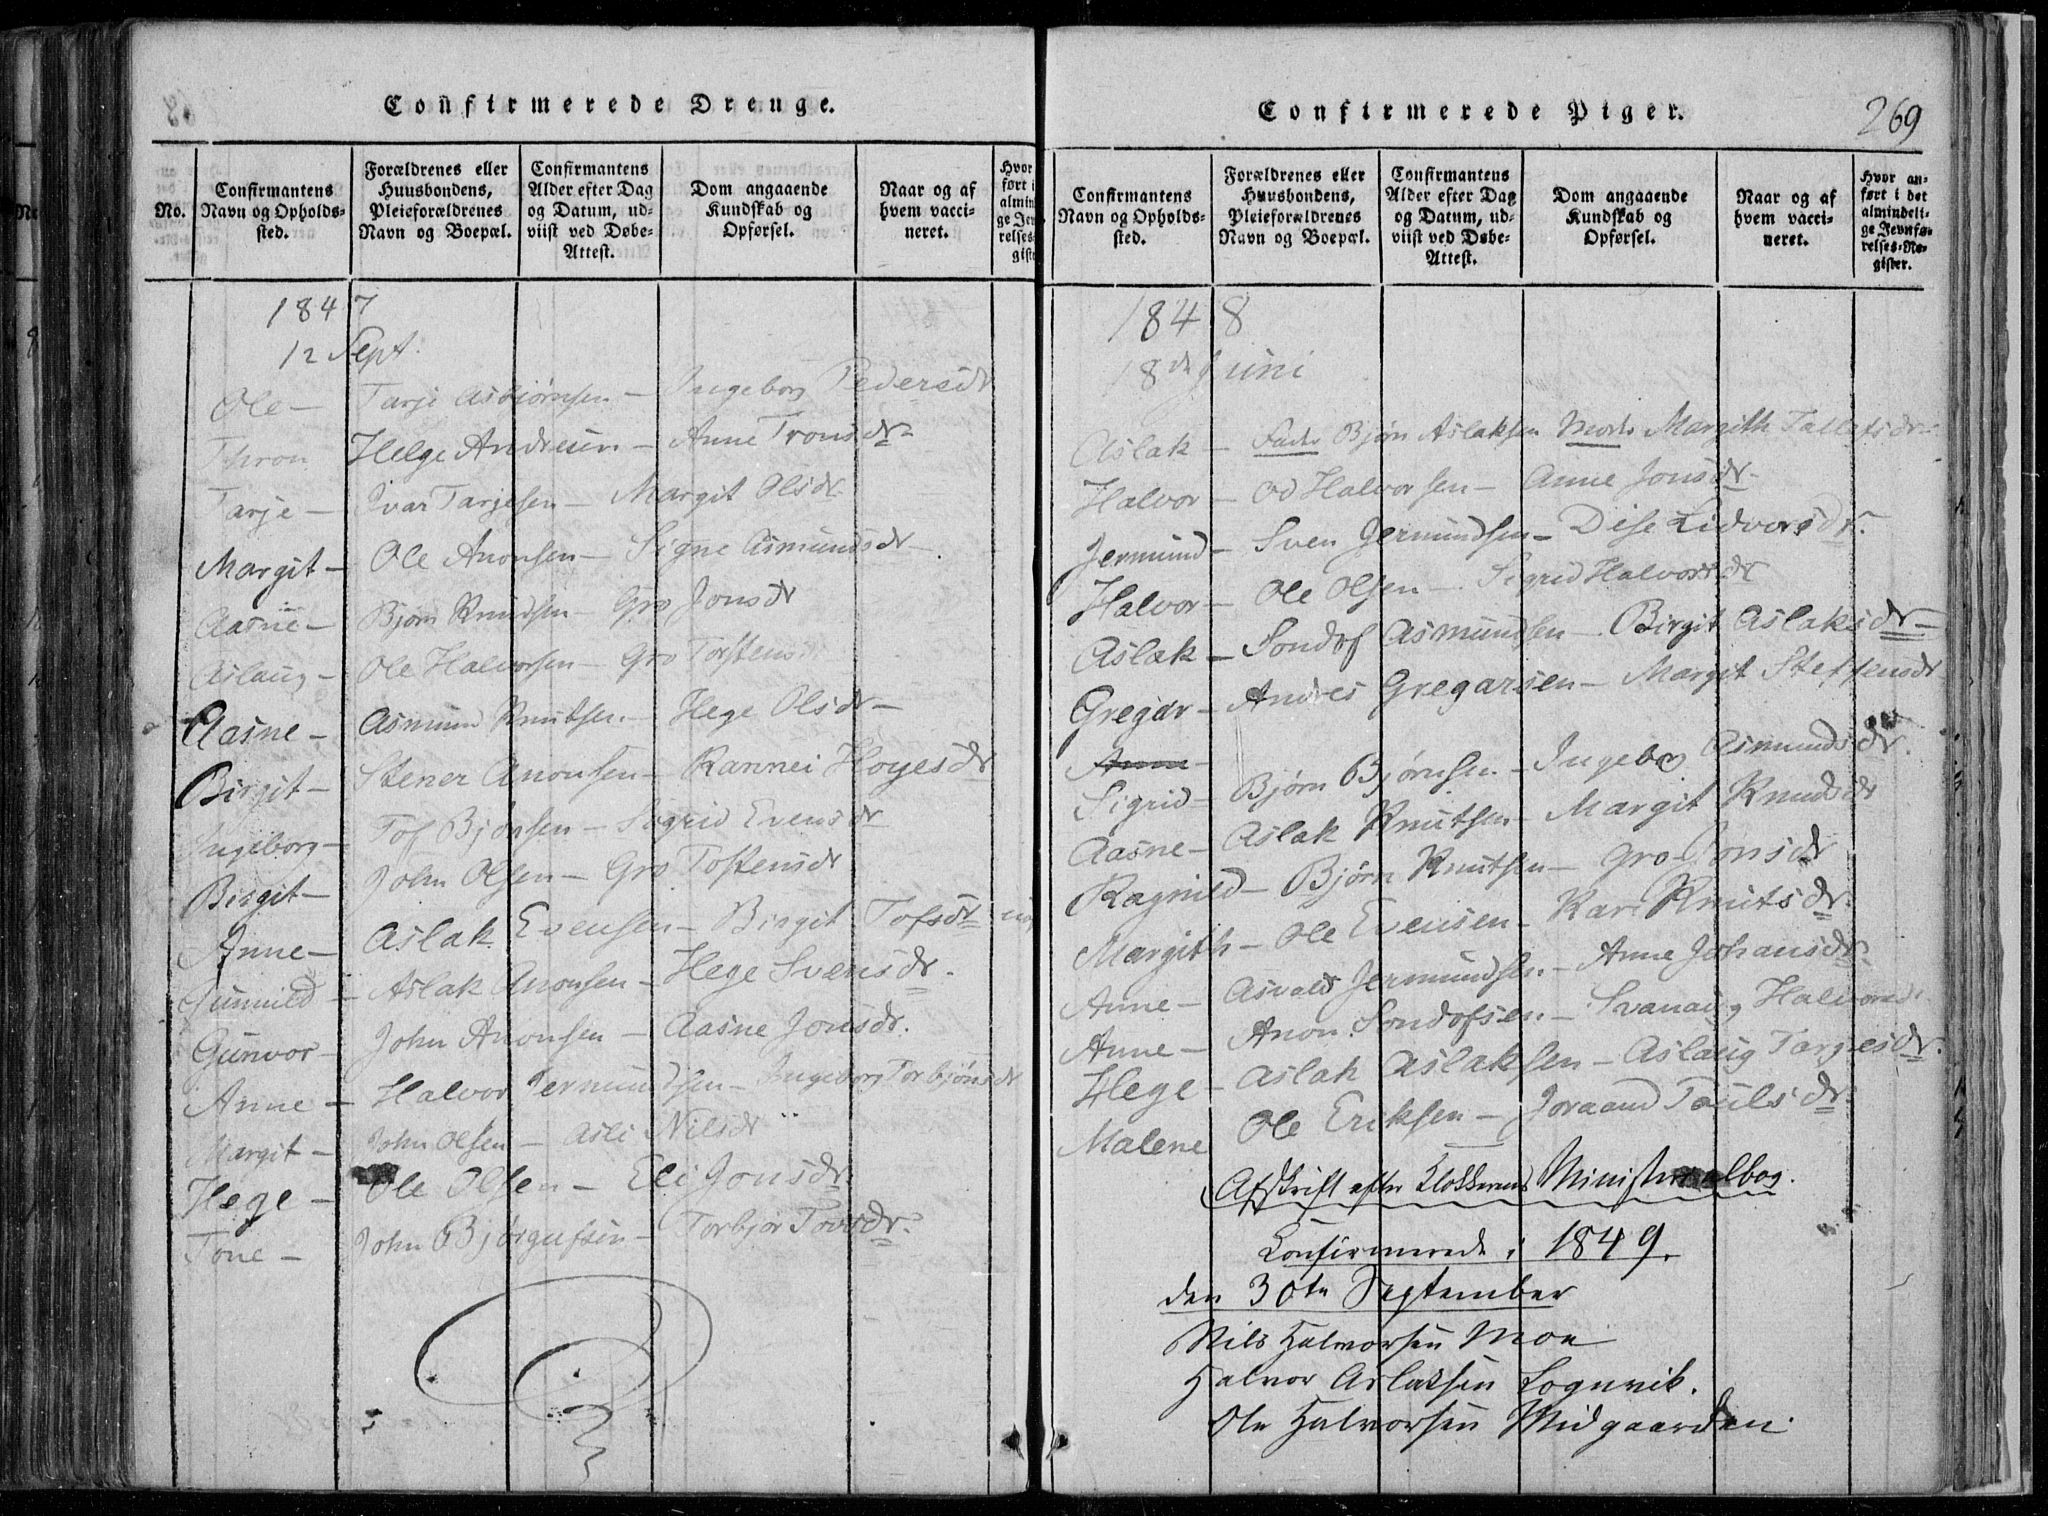 Confirmerede Drenge.
No.
Confirmantens Navn og Opholdssted.
Forældrenes eller Huusbondens, Pleieforældrenes Navn og Boepæl.
Confirmantens Alder efter Dag og Datum, udviist ved Døbe-Attest.
Dom angaaende Kundskab og Opførsel.
Naar og af hvem vaccineret.
1847
12 Sept.
Ole — Tarje Asbiørnsen — Ingeborg Pedersdr
Thron Helge Andresen — Anne Tronsdr
Tarje — Ivar Tarjesen — Margit Olsdr
Margit — Ole Anonsen — Signe Asmundsdr —
Aasne — Bjørn Knudsen — Gro Jonsdr
Aslaug — Ole Halvorsen — Gro Torstensd
Aasne — Asmund Knutsen — Hege Olsdr —
Birgit — Stener Anonsen — Rannei Hoyesdr
Ingeborg — Tof Bjønsen — Sigrid Evensdr
Birgit — John Olsen — Gro Tostensdr
Anne — Aslak Evensen — Birgit Tofsdr
Gunnild — Aslak Anonsen — Hege Svensdr.
Gunvor — John Anonsen — Aasne Jonsdr.
Anne — Halvor Jermundsen — Ingeborg Torbjønsdr
Margit — John Olsen — Asli Nilsdr
Hege — Ole Olsen — Eli Jonsdr
Tone — John Bjørgufsen — Torbjør Tovsdr.
Confirmerede Piger.
269
Confirmantens Navn og Opholdssted.
Forældrenes eller Huusbondens, Pleieforældrenes Navn og Boepæl.
Confirmantens Alder efter Dag og Datum, udviist ved Døbe-Attest.
Dom angaaende Kundskab og Opførsel.
Naar og af hvem vaccineret.
Hvor anført i det almindelige Jevnførelses-Register.
1848
18de Juni
Aslak — Fader Bjørn Aslaksen Moder Margith Tallefsdr
Halvor — Od Halvorsen — Anne Jonsdr
Jermund — Sven Jermundsen — Dise Lidvorsdr.
Halvor — Ole Olsen — Sigrid Halvorsdr
Aslak — Sondof Asmundsen — Birgit Aslaksdr —
Gregar — Andres Gregarsen — Margit Steffensdr
Anne
Sigrid — Bjørn Bjørnsen — Ingeborg Asmundsdr.
Aasne — Aslak Knutsen — Margit Knudsdr
Ragnild — Bjørn Knutsen — Gro Jonsdr
Margith — Ole Evensen — Kari Knutsdr.
Anne — Asvald Jermundsen — Anne Johansdr.
Anne — Anon Sondofsen — Svanaug Halvorsd
Hege — Aslak Aslaksen — Aslaug Tarjesdr.
Malene Ole Eriksen — Joraand Taulsdr
Afskrift efter Klokkerens Ministerialbog.
Confirmerede i 1849.
den 30te September
Nils Halvorsen Moe
Halvor Aslaksen Lognvik.
Ole Halvorsen Midgaarden.